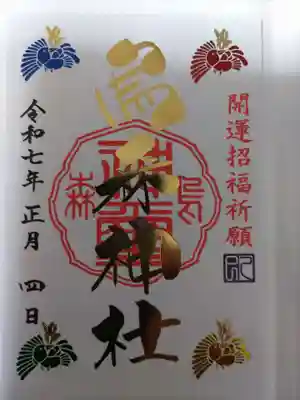 開運招福祈願
烏森神社
烏
森
令和七年 正月 四日